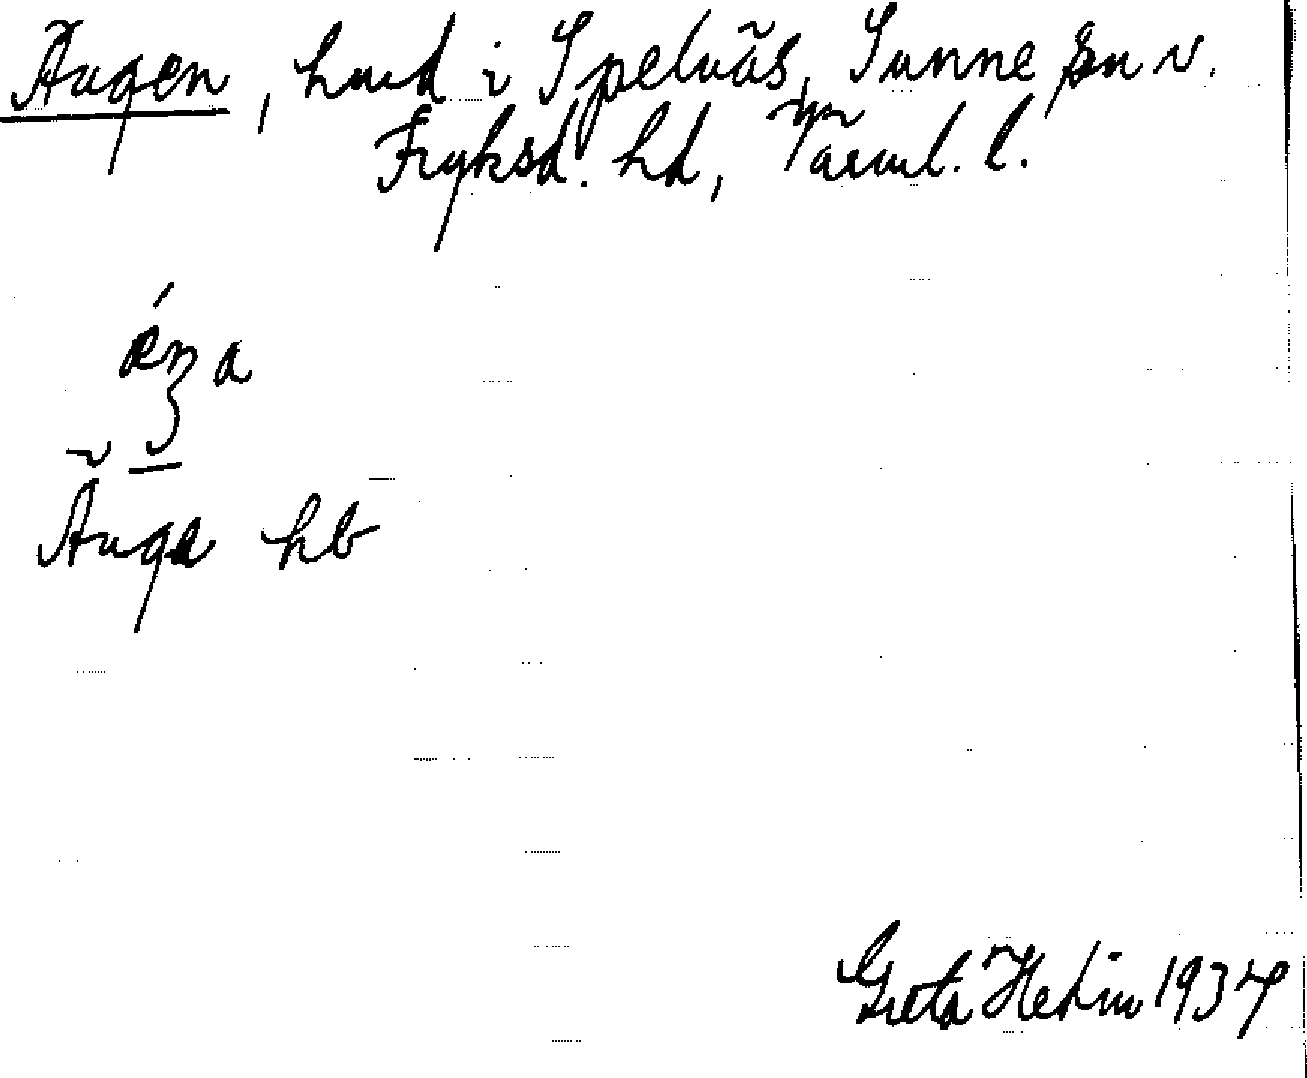 Ängen, hmd i Spelnäs, Sunne sn v.
Fryksd. hd, Värml. l.
Änga hb
Greta Hedin 1937